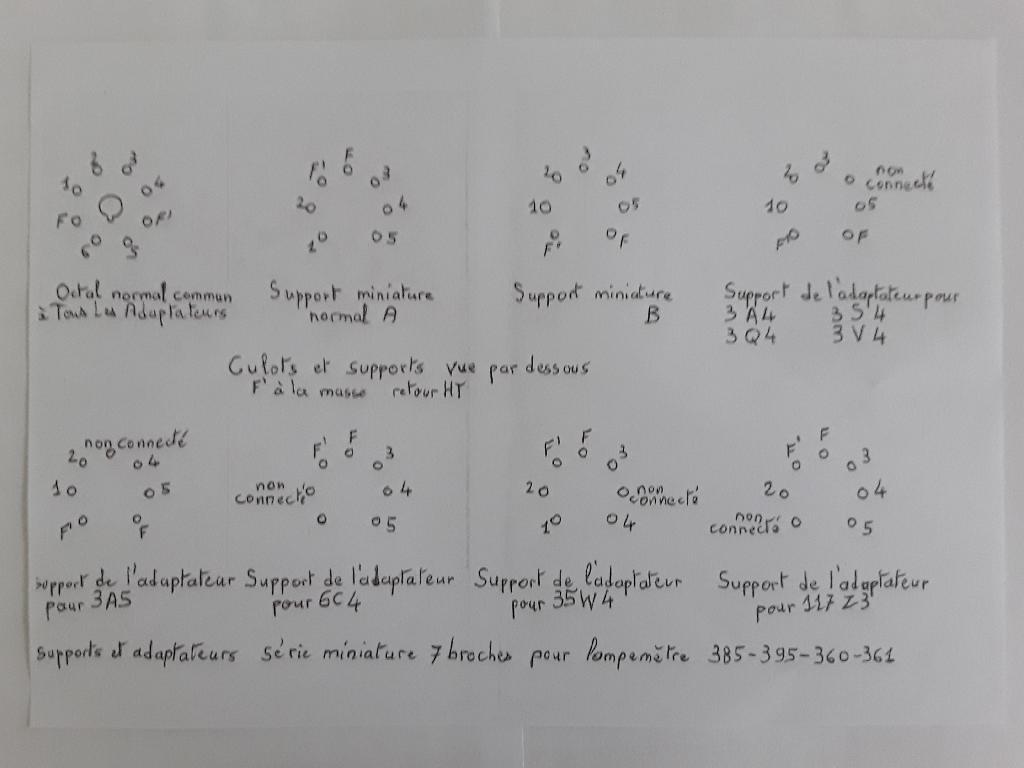 2 3
1 4
F F'
6 5
Octal normal commun
à Tous Les Adaptateurs
F' F 3
2 4
1 5
Support miniature
normal A
2 3 4
1 5
F' F
Support miniature
B
2 3 non
connecté
1 5
F' F
Support de l'adaptateur pour
3A4 3S4
3Q4 3V4
Culots et supports vue par dessous
F' à la masse retour HT
2 non connecté 4
1 5
F' F
support de l'adaptateur
pour 3A5
F' F 3
non
connecté 4
5
Support de l'adaptateur
pour 6C4
F' F 3
2 non
connecté
1 4
Support de l'adaptateur
pour 35W4
F' F 3
2 4
non
connecté 5
Support de l'adaptateur
pour 117Z3
supports et adaptateurs série miniature 7 broches pour Lampemètre 385-395-360-361